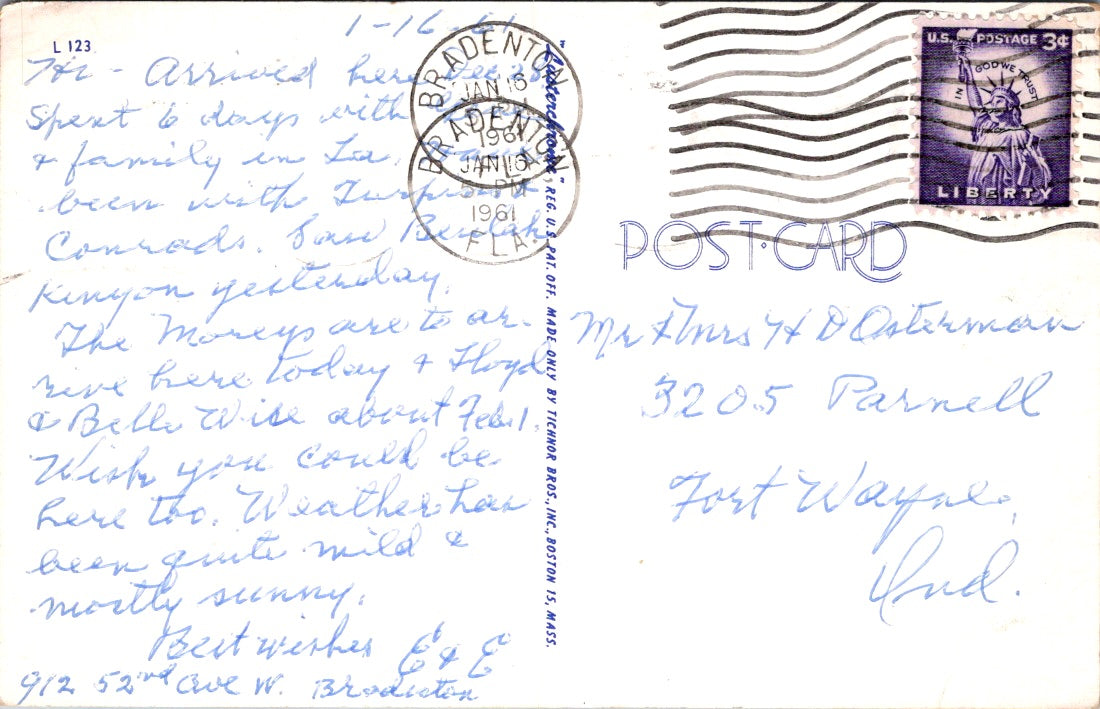 L 123
1-16-61
Hi - Arrived here Dec 28.
Spent 6 days with
& family in La.
been with Turpin &
Conrads. Saw Beulah
Kinyon yesterday.
The Moreys are to ar-
rive here today & Floyd
& Belle Wise about Feb. 1.
Wish you could be
here too. Weather has
been quite mild &
mostly sunny.
Best wishes E & E
912 52nd Ave W. Bradenton
BRADENTON
JAN 16
1961
BRADENTON
JAN 16
5 PM
1961
FLA.
REG. U.S. PAT. OFF. MADE ONLY BY TICHNOR BROS., INC., BOSTON 15, MASS.
U.S. POSTAGE 3¢
IN GOD WE TRUST
LIBERTY
POST·CARD
Mr & Mrs H D Osterman
3205 Parnell
Fort Wayne,
Ind.